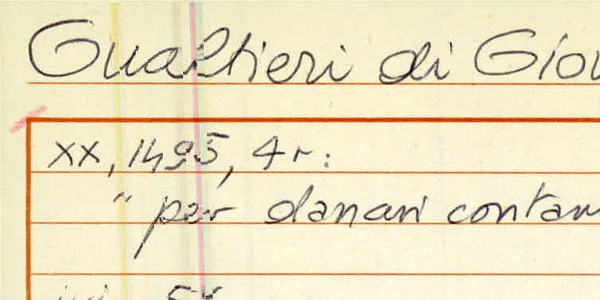 Gualtieri di Giov
xx, 1495, 4r:
" per danari contan
ivi, 5r